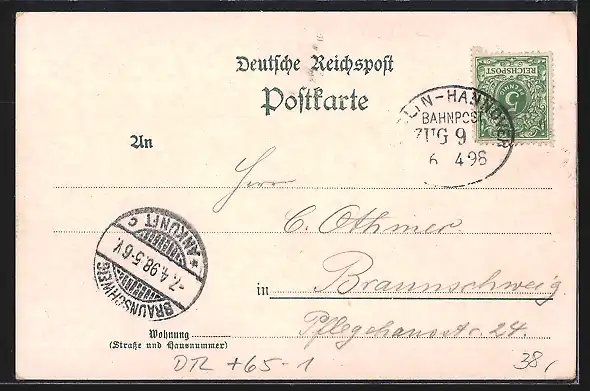 Deutsche Reichspost
Postkarte
REICHSPOST
5
BERLIN-HANNOVER
BAHNPOST
ZUG 9
6 4 98
An
Herrn
C. Othmer
in Braunschweig
Pflegehausstr. 24.
* ANKUNFT C
-7.4.98.5-6V.
BRAUNSCHWEIG
Wohnung
(Straße und Hausnummer)
DTR +65-1
38,